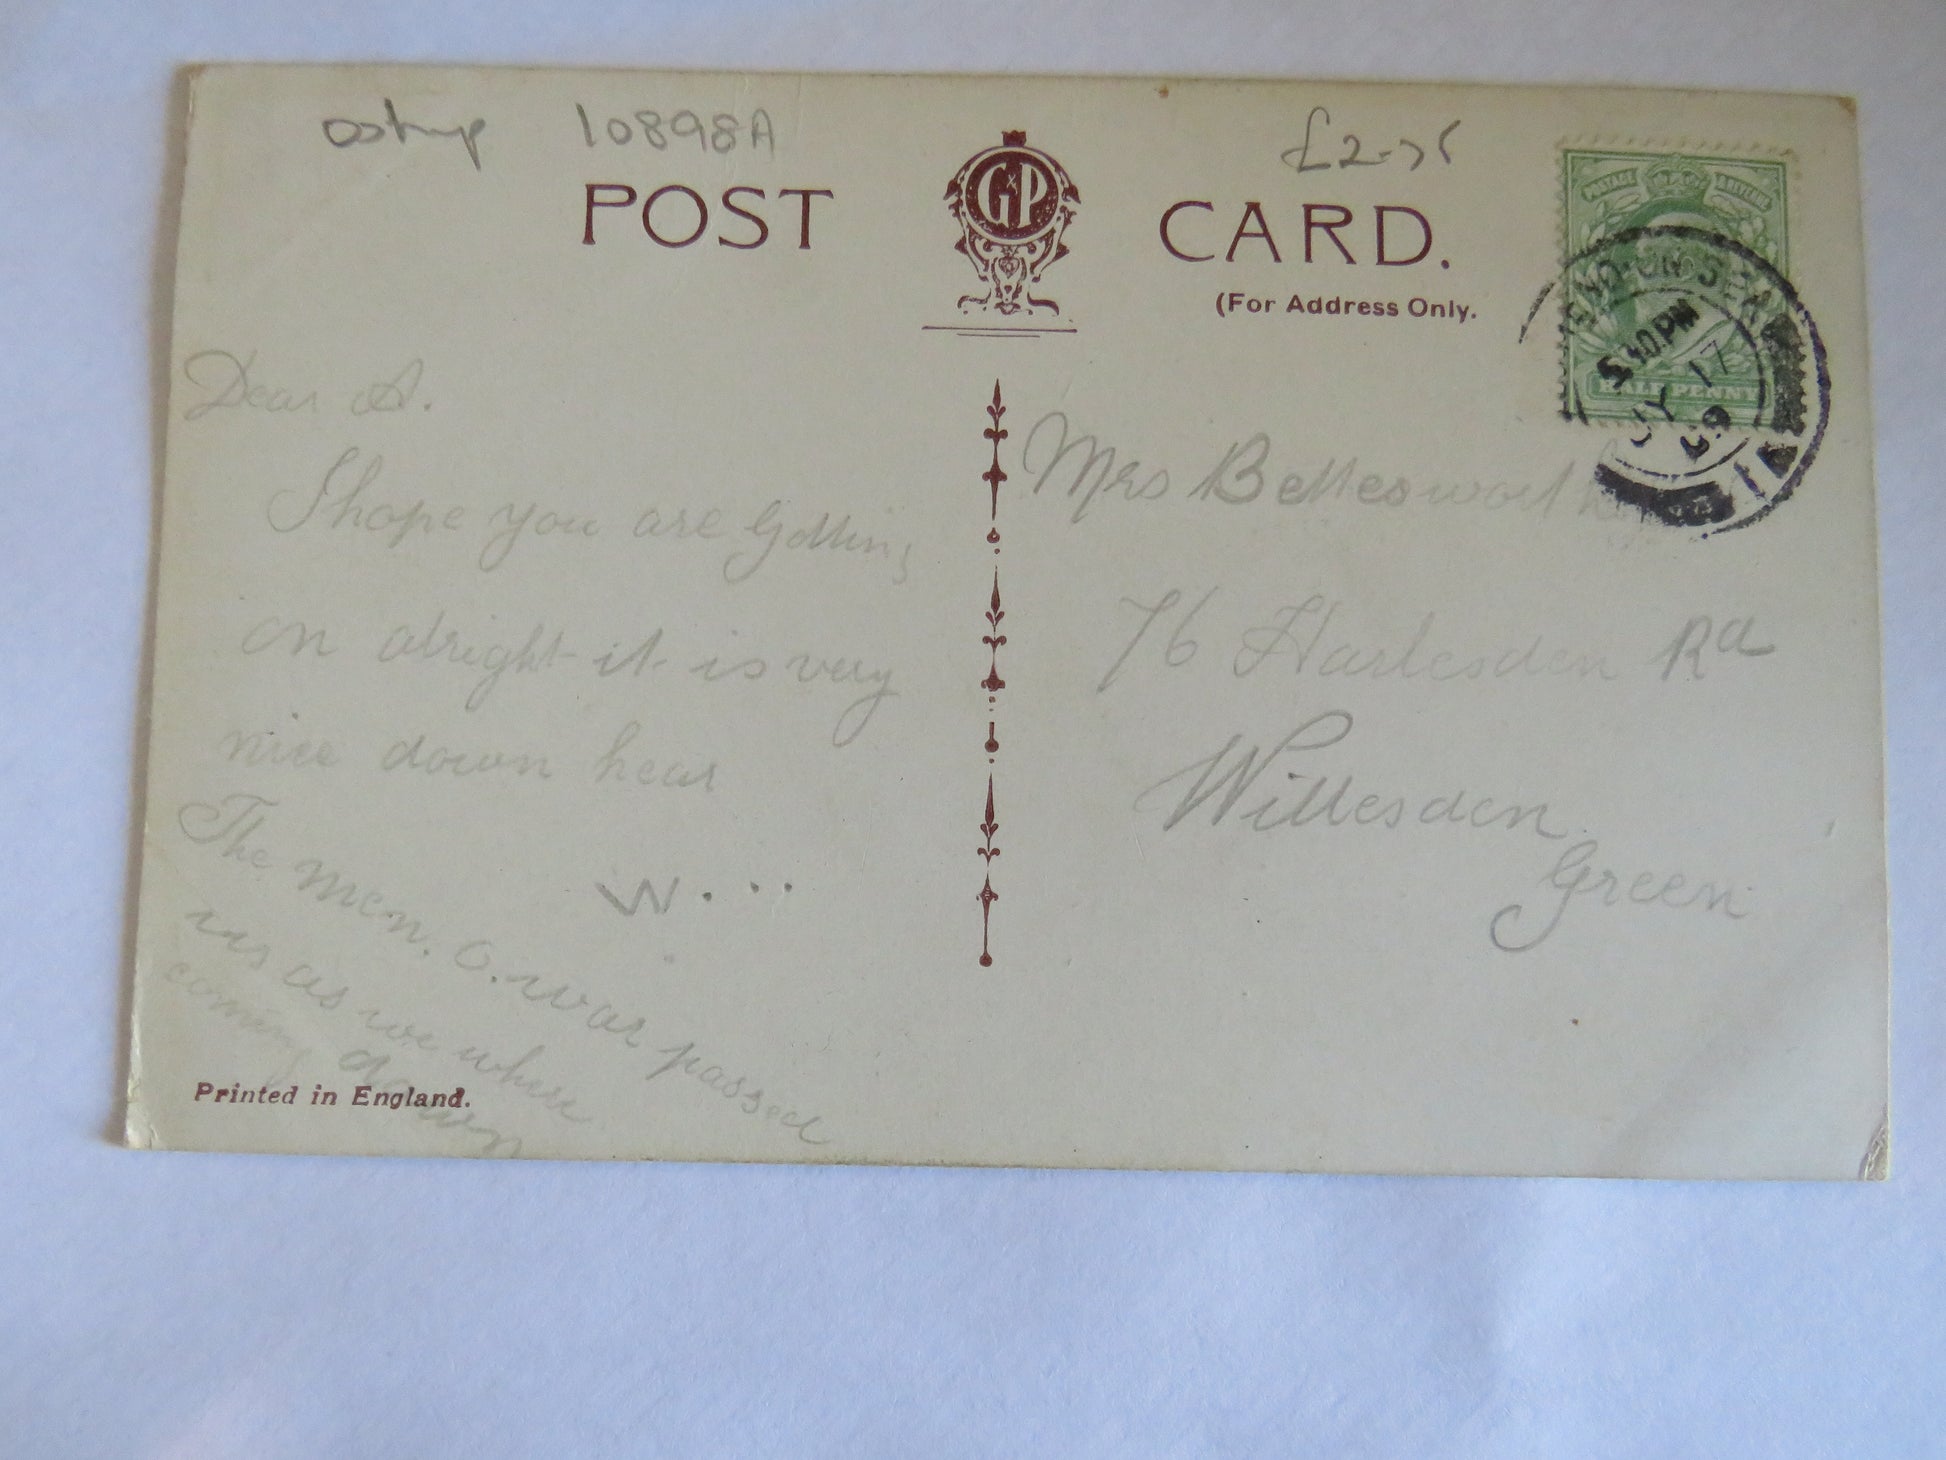 10898A
£2-75
POST CARD.
G P
(For Address Only.
POSTAGE & REVENUE
HALF PENNY
END-ON-SEA
30 PM
JY 17
09
Dear A.
I hope you are getting
on alright it is very
nice down hear
W...
The men. o. war passed
us as we where
coming down
Printed in England.
Mrs Bettesworth
76 Harlesden Rd
Willesden
Green